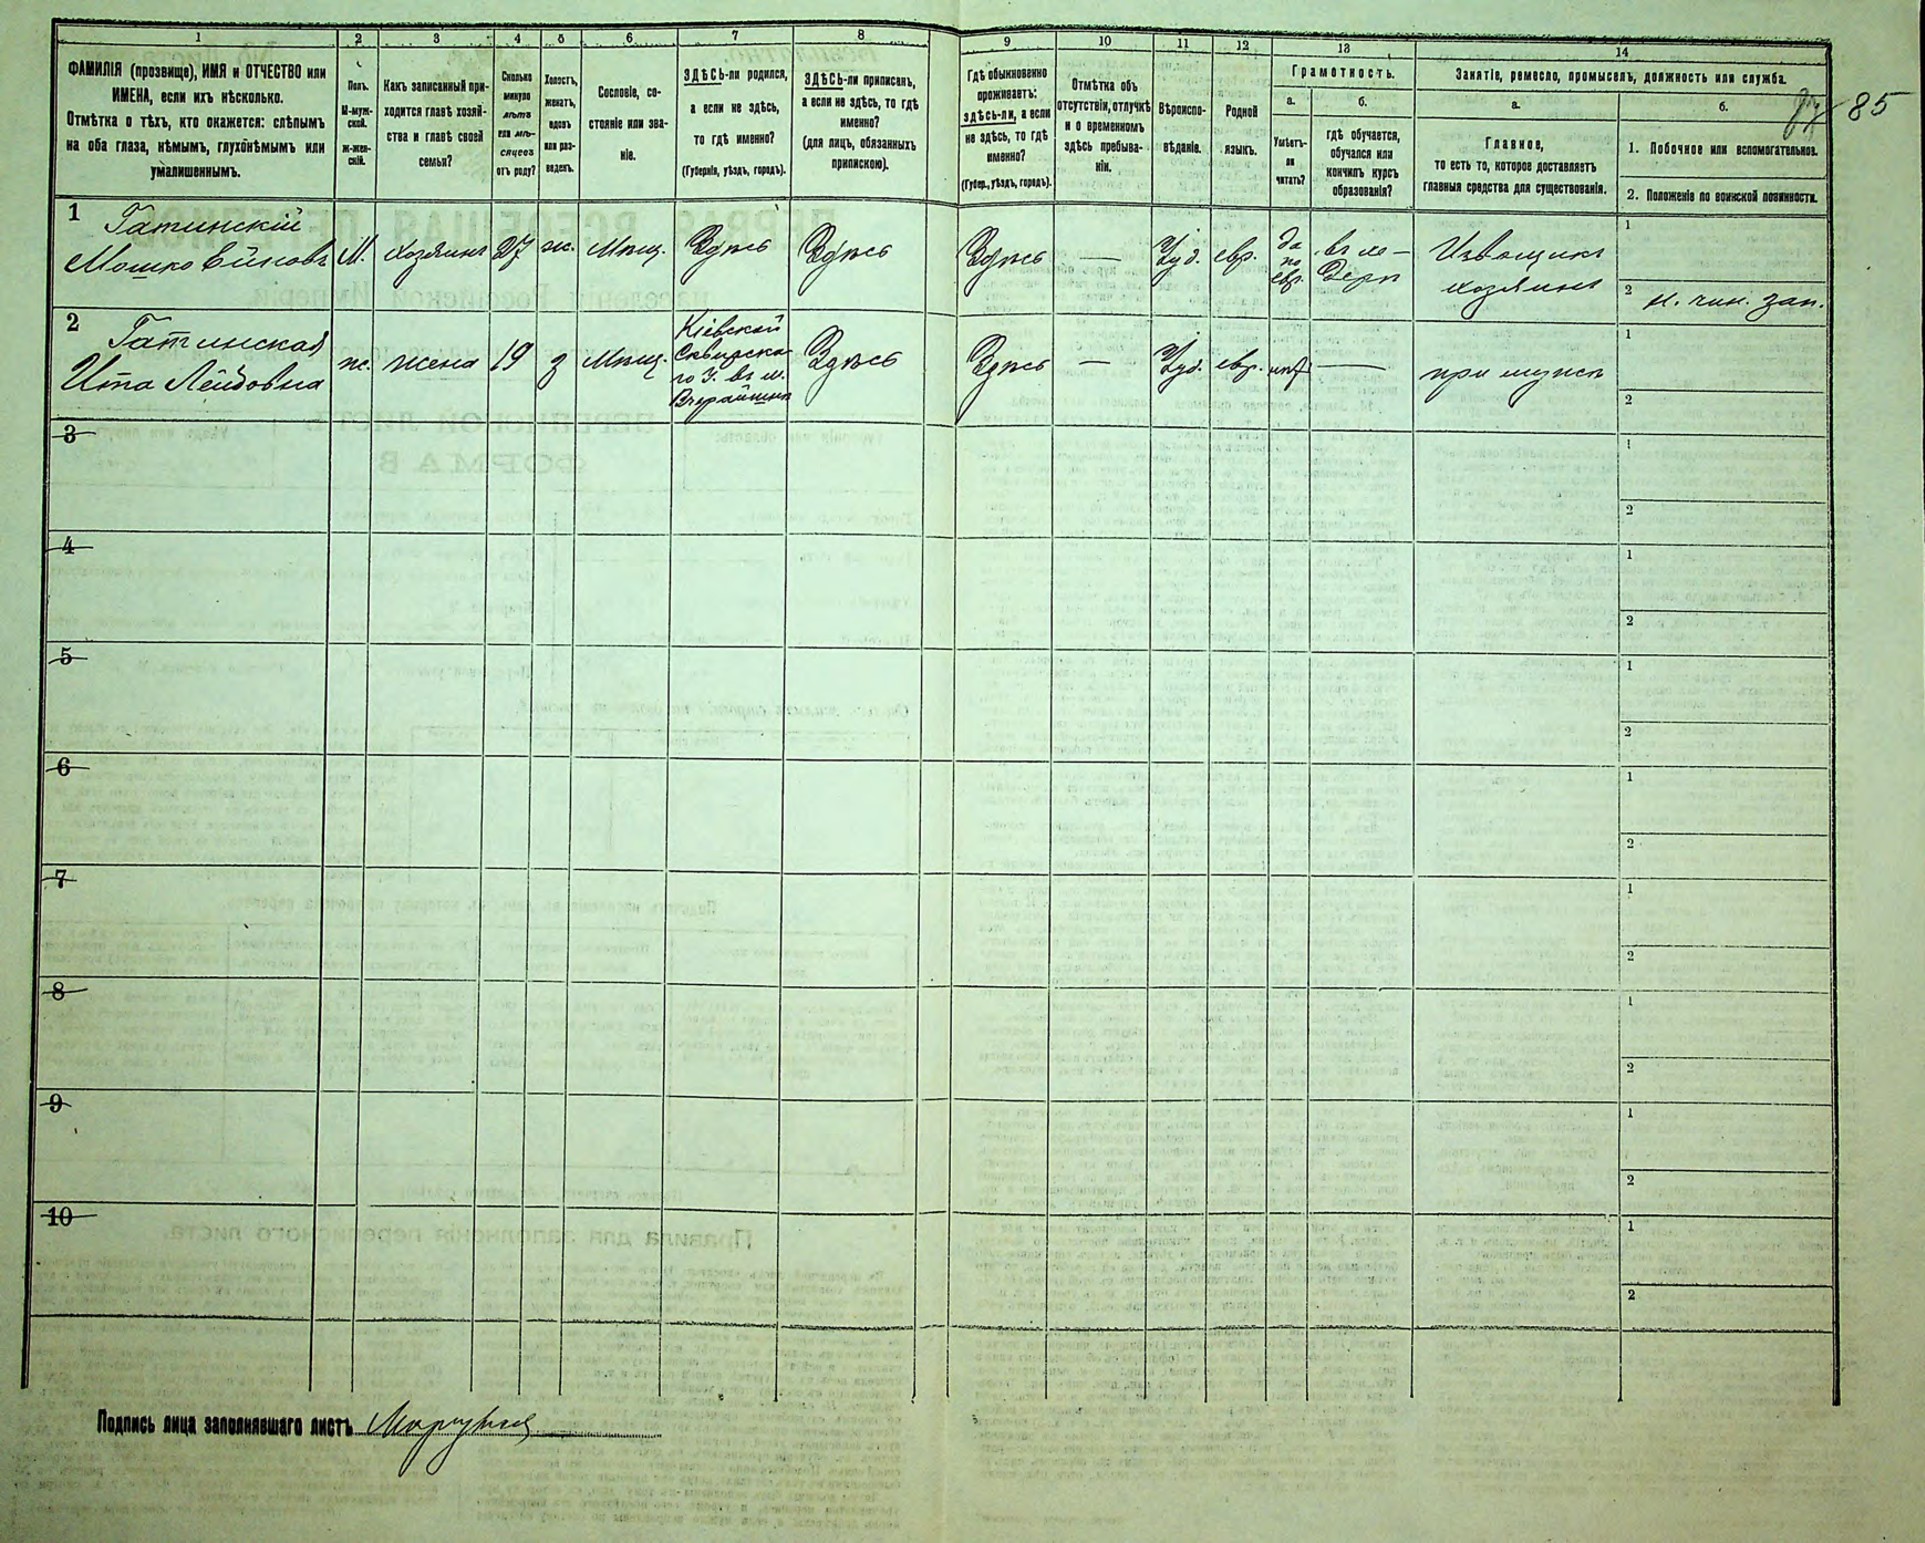 1 2 3 4 5 6 7 8 9 10 11 12 13 14
ФАМИЛІЯ (прозвище), ИМЯ и ОТЧЕСТВО или
ИМЕНА, если ихъ нѣсколько.
Отмѣтка о тѣхъ, кто окажется: слѣпымъ
на оба глаза, нѣмымъ, глухонѣмымъ или
умалишеннымъ.
Полъ.
М-муж-
ской.
ж-жен-
скій.
Какъ записанный при-
ходится главѣ хозяй-
ства и главѣ своей
семьи?
Сколько
минуло
лѣтъ
или мѣ-
сяцевъ
отъ роду?
Холостъ,
женатъ,
вдовъ
или раз-
веденъ.
Сословіе, со-
стояніе или зва-
ніе.
ЗДѢСЬ-ли родился,
а если не здѣсь,
то гдѣ именно?
(Губернія, уѣздъ, городъ).
ЗДѢСЬ-ли приписанъ,
а если не здѣсь, то гдѣ
именно?
(для лицъ, обязанныхъ
припискою).
Гдѣ обыкновенно
проживаетъ:
здѣсь-ли, а если
не здѣсь, то гдѣ
именно?
(Губер., уѣздъ, городъ).
Отмѣтка объ
отсутствіи, отлучкѣ
и о временномъ
здѣсь пребыва-
ніи.
Вѣроиспо-
вѣданіе.
Родной
языкъ.
Грамотность.
а.
Умѣетъ-
ли
читать?
б.
гдѣ обучается,
обучался или
кончилъ курсъ
образованія?
Занятіе, ремесло, промыселъ, должность или служба.
а.
Главное,
то есть то, которое доставляетъ
главныя средства для существованія.
б.
1. Побочное или вспомогательное.
2. Положеніе по воинской повинности.
85
1
Гатинскій
Мошко
М.
хозяинъ
27
ж.
Мѣщ.
Здѣсь
Здѣсь
Здѣсь
—
Іуд.
евр.
да
по
евр.
въ хе-
дерѣ
Извощикъ
хозяинъ
1
2 н. чин. зап.
2
Гатинская
Ита Лейбовна
ж.
жена
19
з
Мѣщ.
Кіевской
Сквирска-
го У. въ м.
Вчерайшнѣ
Здѣсь
Здѣсь
—
Іуд.
евр.
нѣт
—
при мужѣ
1
2
3
1
2
4
1
2
5
1
2
6
1
2
7
1
2
8
1
2
9
1
2
10
1
2
Подпись лица заполнявшаго листъ